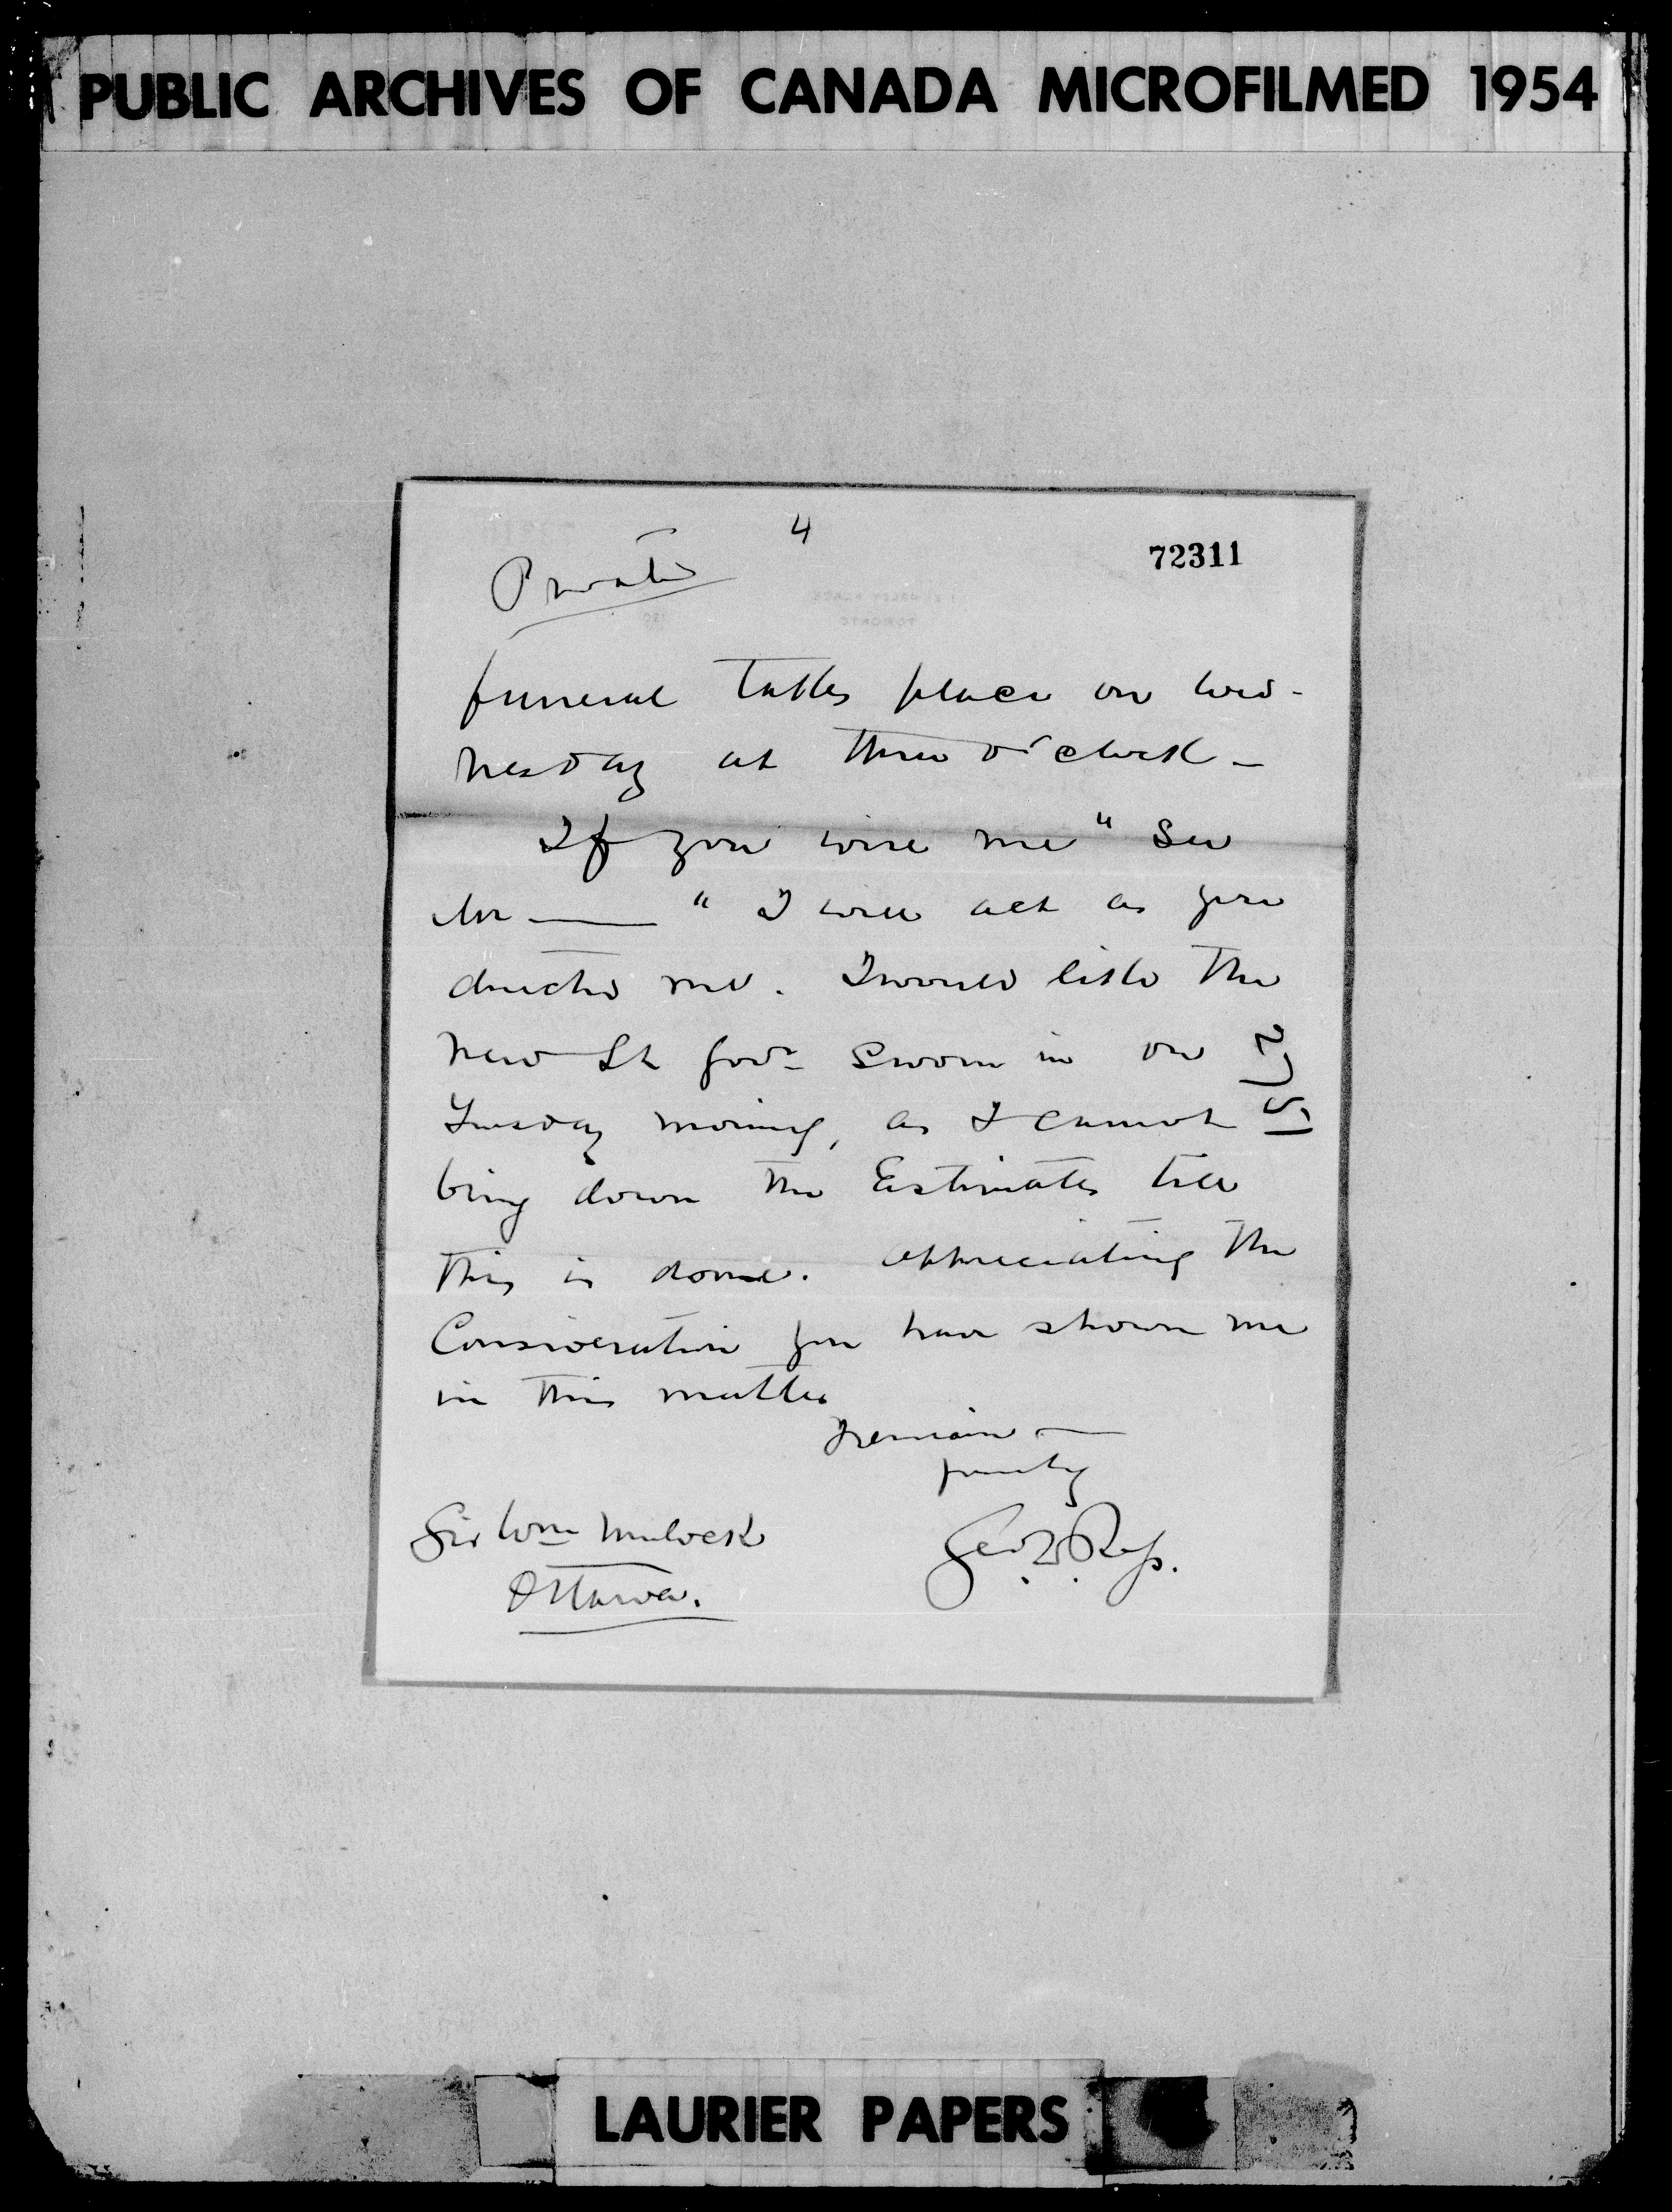 PUBLIC ARCHIVES OF CANADA MICROFILMED 1954
4
72311
Private
funeral takes place on Wed-
nesday at three o'clock -
If you wire me "See
Mr —— " I will act as you
directed me. I would like the
new Lt Govr sworn in on
Tuesday morning, as I cannot
bring down the Estimates till
this is done. Appreciating the
Consideration you have shown me
in this matter
I remain —
Geo. W. Ross.
Sir Wm Mulock
Ottawa.
LAURIER PAPERS